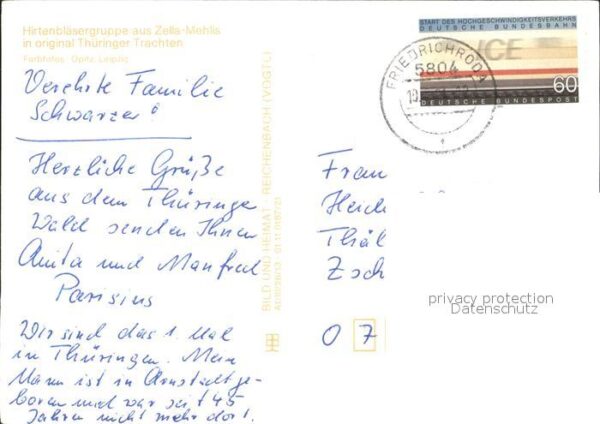 Hirtenbläsergruppe aus Zella-Mehlis
in original Thüringer Trachten
Farbfotos: Opitz, Leipzig
Verehrte Familie
Schwarzer!
Herzliche Grüße
aus dem Thüringe
Wald senden Ihnen
Anita und Manfred
Parisius
Wir sind das 1. Mal
in Thüringen. Mein
Mann ist in Arnstadt ge-
boren und war seit 45
Jahren nicht mehr dort.
BILD UND HEIMAT REICHENBACH (VOGTL)
START DES HOCHGESCHWINDIGKEITSVERKEHRS
DEUTSCHE BUNDESBAHN
ICE
60
DEUTSCHE BUNDESPOST
FRIEDRICHRODA
5804
Frau
Heid
Thäl
Zsch
O 7
privacy protection
Datenschutz